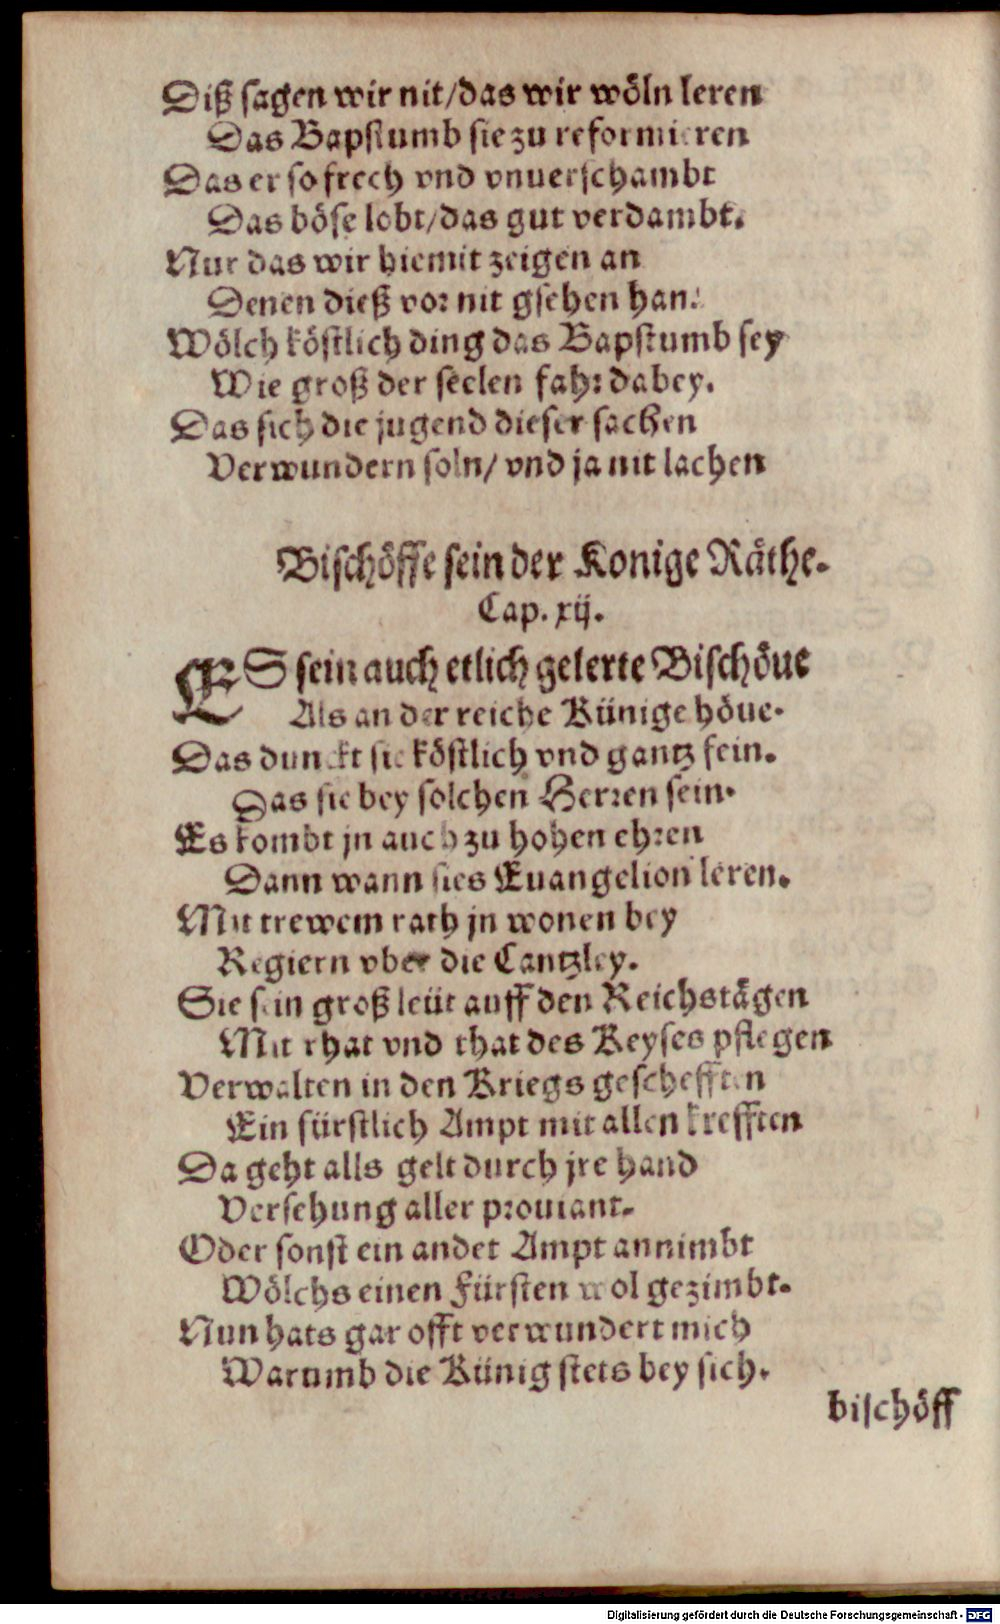 Diß sagen wir nit/das wir wöln leren
Das Bapstumb sie zu reformieren
Das er so frech vnd vnuerschambt
Das böse lobt/das gut verdambt.
Nur das wir hiemit zeigen an
Denen dieß vor nit gsehen han.
Wölch köstlich ding das Bapstumb sey
Wie groß der seelen fahr dabey.
Das sich die jugend dieser sachen
Verwundern soln/ vnd ja nit lachen
Bischöffe sein der Konige Räthe.
Cap. xij.
ES sein auch etlich gelerte Bischöue
Als an der reiche Künige höue.
Das dunckt sie köstlich vnd gantz fein.
Das sie bey solchen Herren sein.
Es kombt jn auch zu hohen ehren
Dann wann sies Euangelion leren.
Mit trewem rath jn wonen bey
Regiern vber die Cantzley.
Sie sein groß leüt auff den Reichstägen
Mit rhat vnd that des Keyses pflegen
Verwalten in den Kriegs geschefften
Ein fürstlich Ampt mit allen krefften
Da geht alls gelt durch jre hand
Versehung aller prouiant.
Oder sonst ein andet Ampt annimbt
Wölchs einen Fürsten wol gezimbt.
Nun hats gar offt verwundert mich
Warumb die Künig stets bey sich.
bischöff
Digitalisierung gefördert durch die Deutsche Forschungsgemeinschaft - DFG